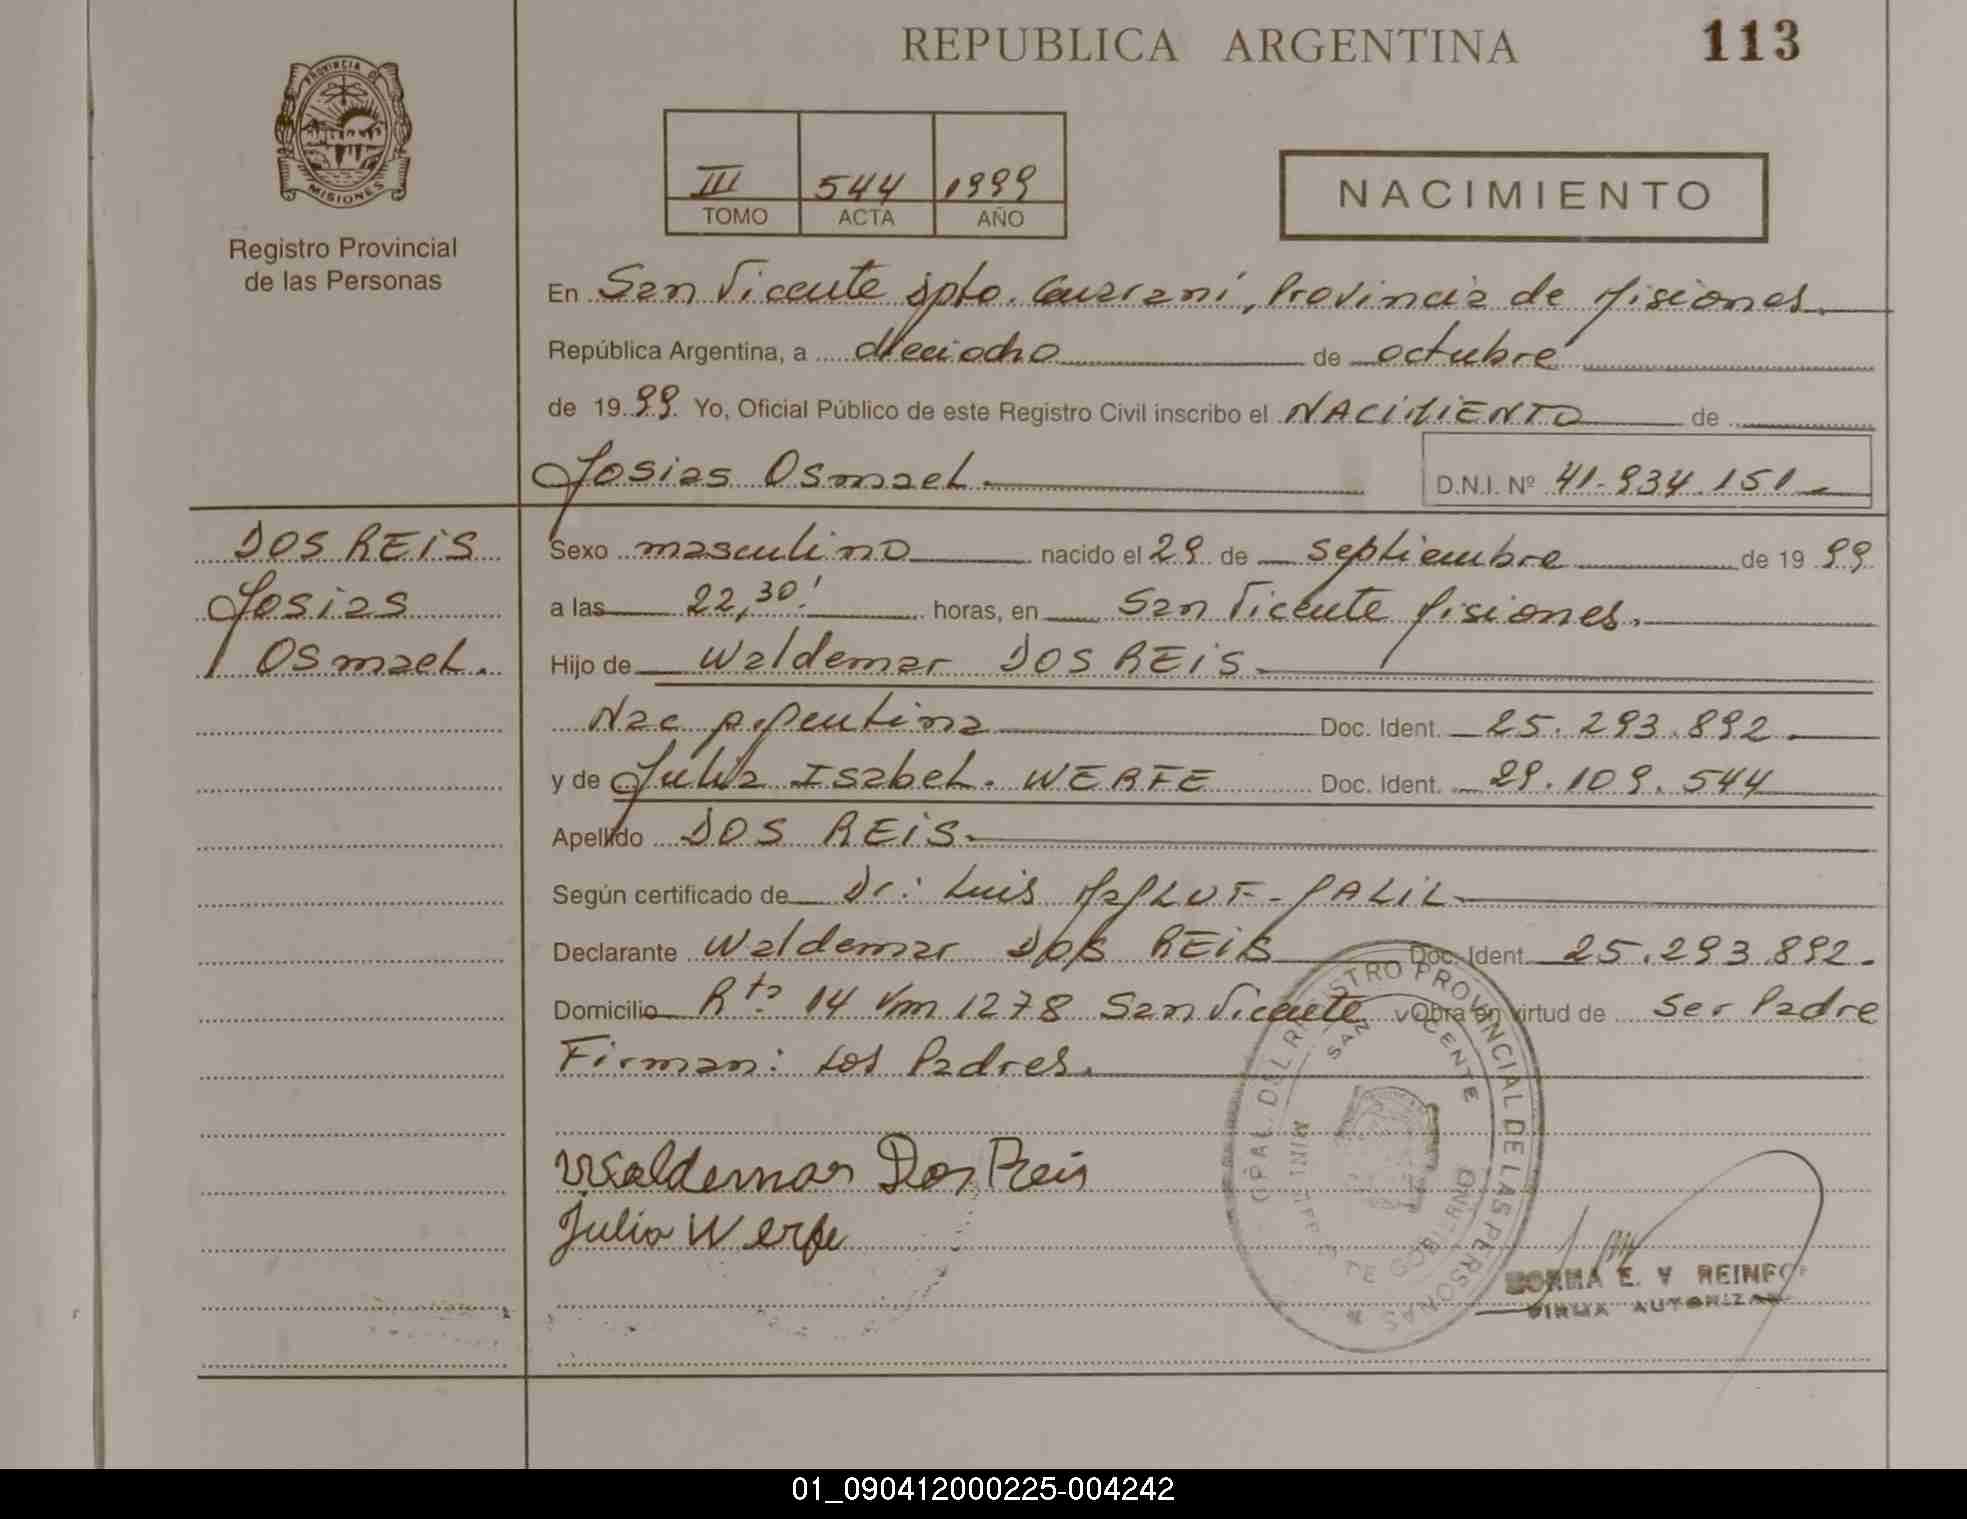 REPUBLICA ARGENTINA
113
PROVINCIA DE
MISIONES
Registro Provincial
de las Personas
III 544 1999
TOMO ACTA AÑO
NACIMIENTO
En San Vicente Dpto. Guaraní, Provincia de Misiones.
República Argentina, a dieciocho de octubre
de 1999 Yo, Oficial Público de este Registro Civil inscribo el NACIMIENTO de
Josias Osmael.
D.N.I. Nº 41.934.151
DOS REIS
Josias
Osmael.
Sexo masculino nacido el 29 de septiembre de 1999
a las 22,30' horas, en San Vicente Misiones.
Hijo de Waldemar DOS REIS
Nac Argentina Doc. Ident. 25.293.892.
y de Julia Isabel. WERFE Doc. Ident. 29.109.544
Apellido DOS REIS.
Según certificado de Dr: Luis
Declarante Waldemar DOS REIS Doc. Ident. 25.293.892.
Domicilio Rta 14 Km 1278 San Vicente Obra en virtud de Ser Padre
Firman: Los Padres.
Waldemar Dos Reis
Julia Werfe
DEL REGISTRO PROVINCIAL DE LAS PERSONAS
SAN VICENTE
DE GOBIERNO
NORMA E. V. REINFO
FIRMA AUTORIZADA
01_090412000225-004242